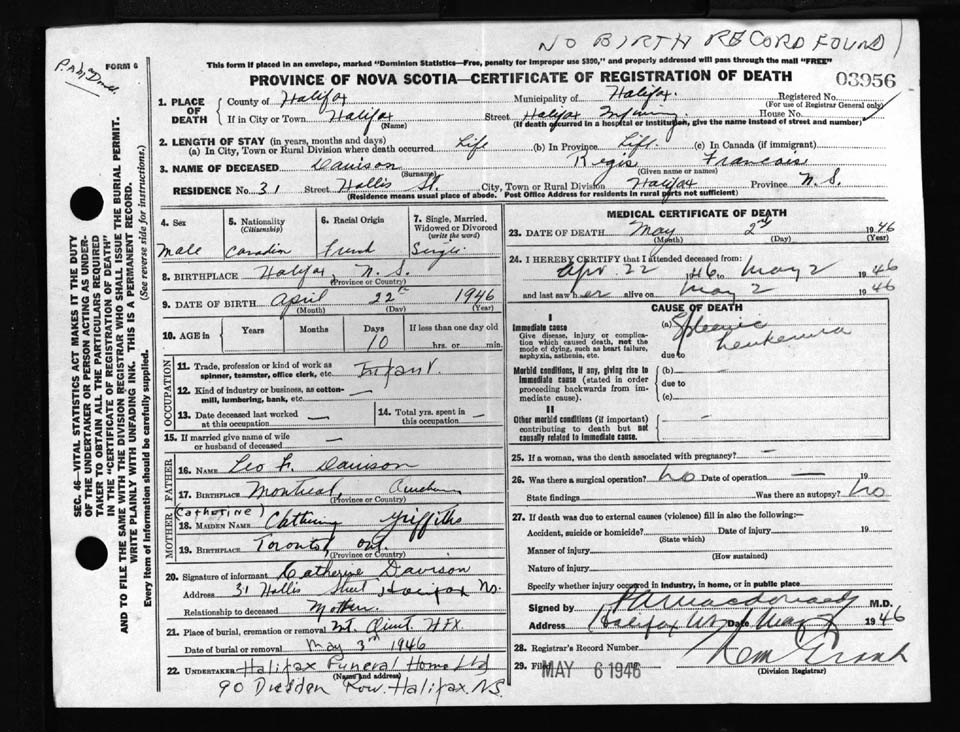 NO BIRTH RECORD FOUND)
FORM 6
This form if placed in an envelope, marked "Dominion Statistics—Free, penalty for improper use $300," and properly addressed will pass through the mail "FREE"
PROVINCE OF NOVA SCOTIA—CERTIFICATE OF REGISTRATION OF DEATH
03956
SEC. 46—VITAL STATISTICS ACT MAKES IT THE DUTY
OF THE UNDERTAKER OR PERSON ACTING AS UNDER-
TAKER TO OBTAIN ALL THE PARTICULARS REQUIRED
IN THE "CERTIFICATE OF REGISTRATION OF DEATH"
AND TO FILE THE SAME WITH THE DIVISION REGISTRAR WHO SHALL ISSUE THE BURIAL PERMIT.
WRITE PLAINLY WITH UNFADING INK. THIS IS A PERMANENT RECORD.
Every item of Information should be carefully supplied. (See reverse side for instructions.)
1. PLACE OF DEATH
County of Halifax Municipality of Halifax. Registered No.
(For use of Registrar General only)
If in City or Town Halifax Street Halifax Infirmary House No.
(Name) (If death occurred in a hospital or institution, give the name instead of street and number)
2. LENGTH OF STAY (in years, months and days)
(a) In City, Town or Rural Division where death occurred Life (b) In Province Life. (c) In Canada (if immigrant)
3. NAME OF DECEASED Davison Regis Francois
(Surname) (Given name or names)
RESIDENCE NO. 31 Street Hollis St. City, Town or Rural Division Halifax Province N.S.
(Residence means usual place of abode. Post Office Address for residents in rural parts not sufficient)
4. Sex
Male
5. Nationality
(Citizenship)
6. Racial Origin
7. Single, Married,
Widowed or Divorced
(write the word)
Single
8. BIRTHPLACE Halifax N.S.
(Province or Country)
9. DATE OF BIRTH April 22 1946
(Month) (Day) (Year)
10. AGE in
Years Months Days If less than one day old
10 hrs. or min.
OCCUPATION
11. Trade, profession or kind of work as
spinner, teamster, office clerk, etc. Infant.
12. Kind of industry or business, as cotton-
mill, lumbering, bank, etc. —
13. Date deceased last worked
at this occupation —
14. Total yrs. spent in
this occupation —
15. If married give name of wife
or husband of deceased —
FATHER
16. NAME Leo F. Davison
17. BIRTHPLACE Montreal,
(Province or Country)
MOTHER
(CATHERINE)
18. MAIDEN NAME Catherine Griffiths
19. BIRTHPLACE Toronto, Ont.
(Province or Country)
20. Signature of informant Catherine Davison
Address 31 Hollis Street Halifax N.S.
Relationship to deceased Mother.
21. Place of burial, cremation or removal Mt. Olivet HFX.
Date of burial or removal May 3rd 1946
22. UNDERTAKER Halifax Funeral Home Ltd
(Name and address)
90 Dresden Row. Halifax, N.S.
MEDICAL CERTIFICATE OF DEATH
23. DATE OF DEATH May 2nd 1946
(Month) (Day) (Year)
24. I HEREBY CERTIFY that I attended deceased from:
Apr. 22 1946 to May 2 1946
and last saw her alive on May 2 1946
CAUSE OF DEATH
I
Immediate cause
Give disease, injury or complica-
tion which caused death, not the
mode of dying, such as heart failure,
asphyxia, asthenia, etc.
(a) Splenic Leukemia
due to
Morbid conditions, if any, giving rise to
immediate cause (stated in order
proceeding backwards from im-
mediate cause).
(b)
due to
(c)
II
Other morbid conditions (if important)
contributing to death but not
causally related to immediate cause.
—
25. If a woman, was the death associated with pregnancy? —
26. Was there a surgical operation? No Date of operation — 19
State findings Was there an autopsy? No
27. If death was due to external causes (violence) fill in also the following:—
Accident, suicide or homicide? Date of injury 19
(State which)
Manner of injury
(How sustained)
Nature of injury
Specify whether injury occured in industry, in home, or in public place
Signed by M.D.
Address Halifax N.S. Date May 1946
28. Registrar's Record Number
29. Filed MAY 6 1946
(Division Registrar)